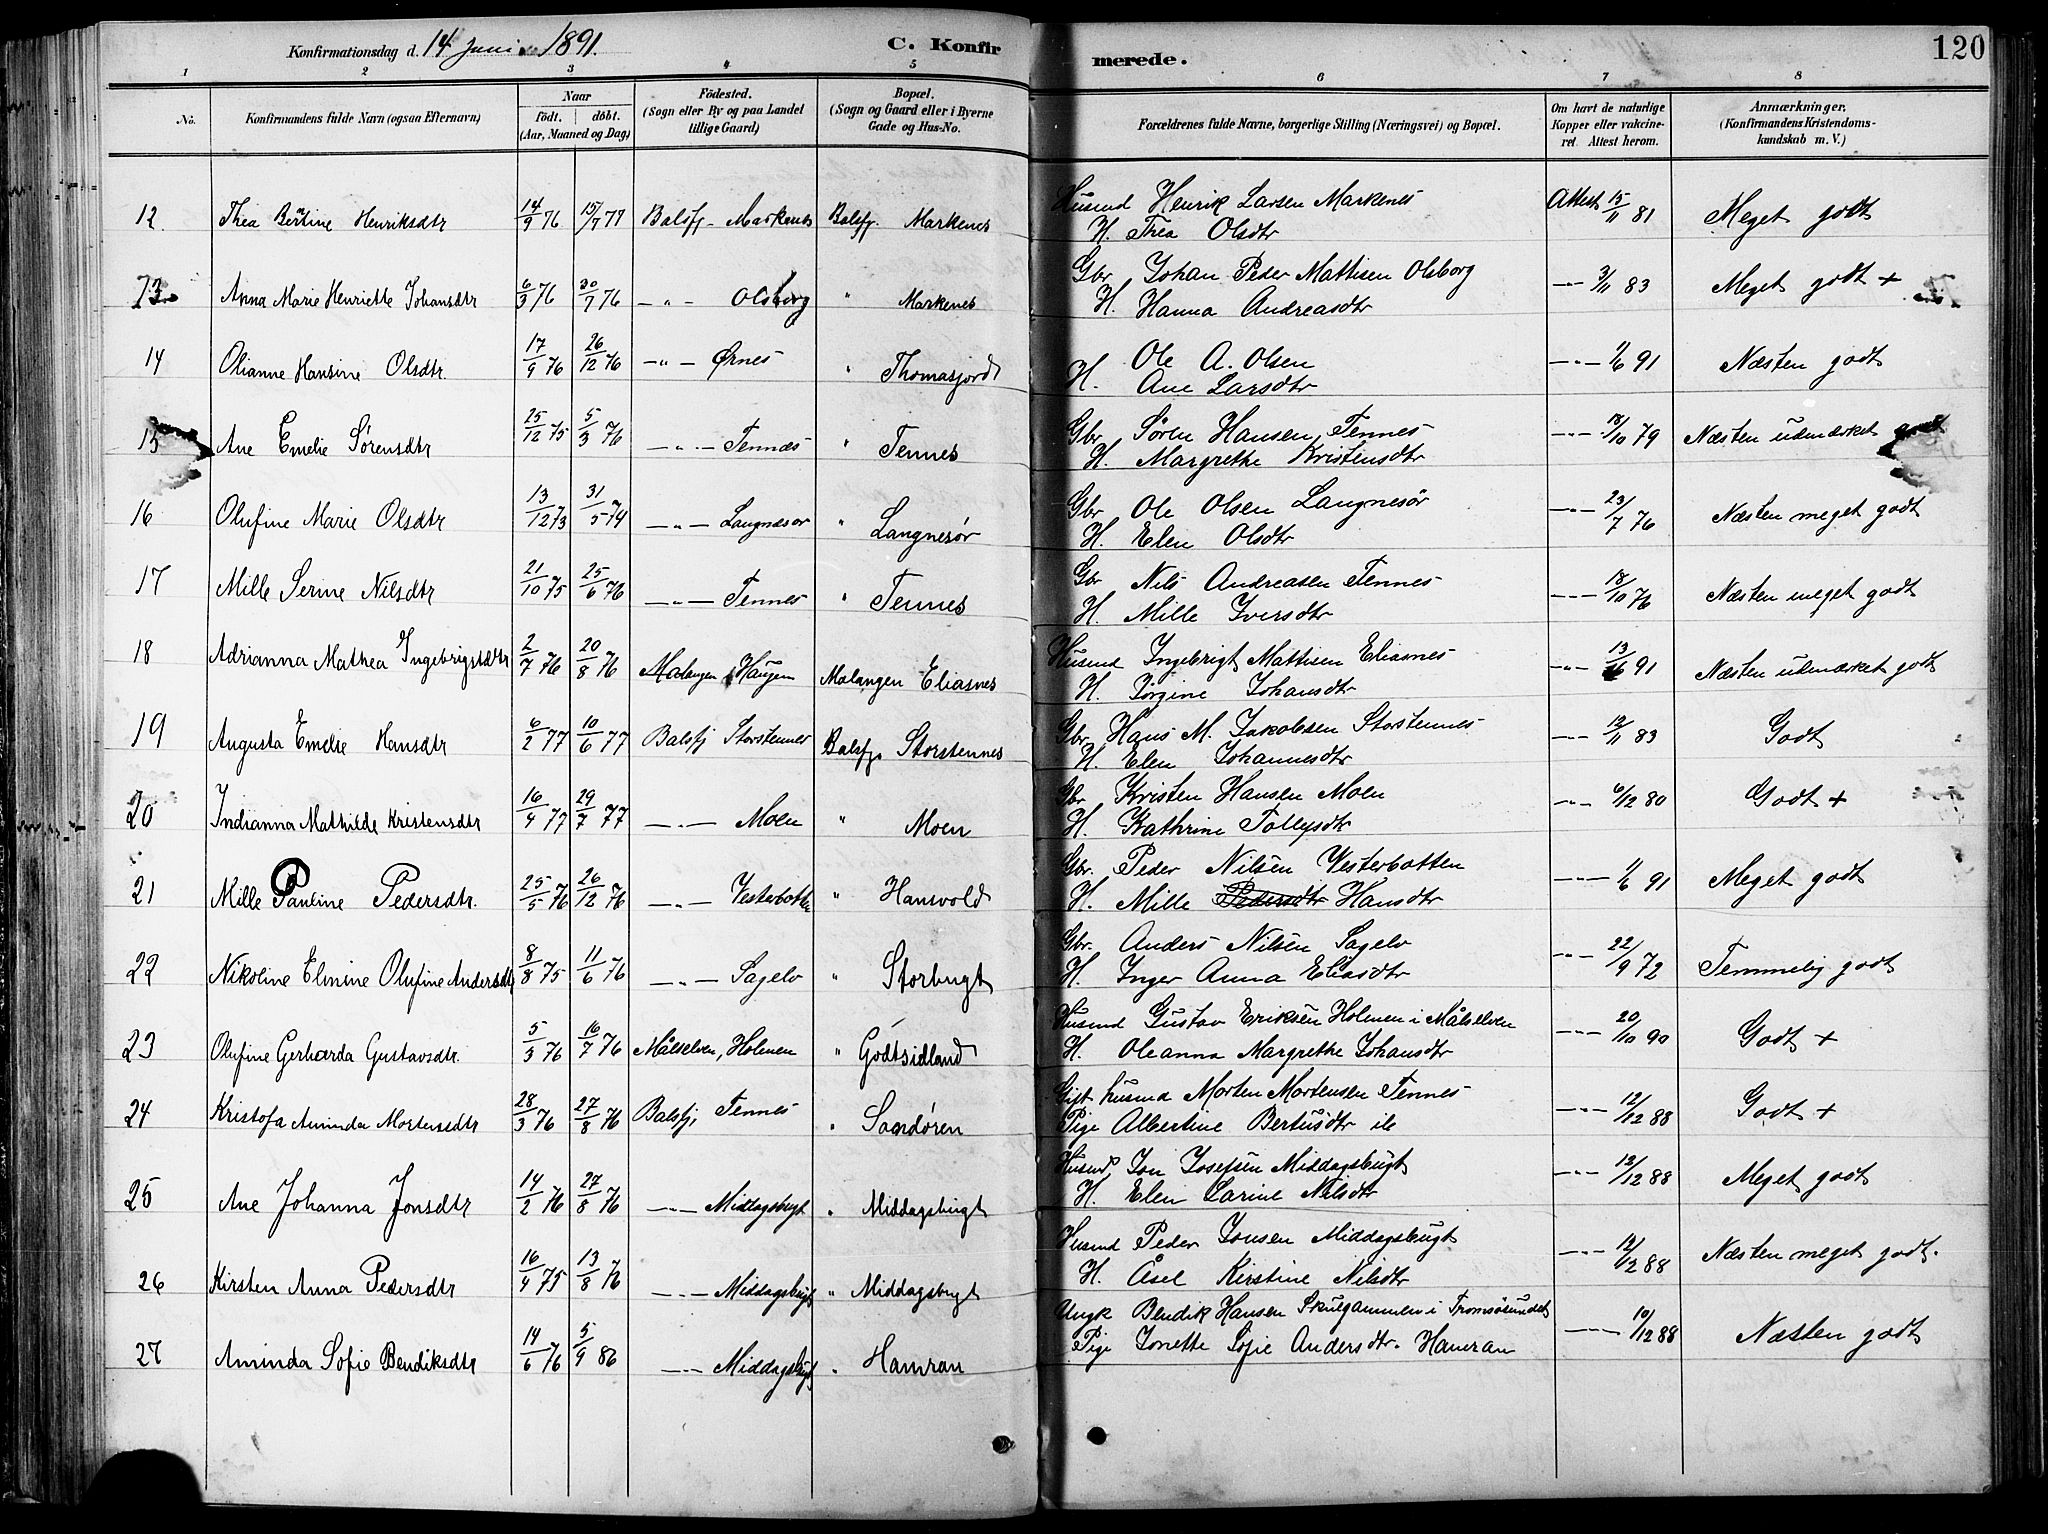 Konfirmationsdag d. 14 Juni 1891. C. Konfirmerede. 120
1 2 3 4 5 6 7 8
No. Konfirmandens fulde Navn (ogsaa Efternavn) Naar født. døbt. (Aar, Maaned og Dag) Fødested. (Sogn eller By og paa Landet tillige Gaard) Bopæl. (Sogn og Gaard eller i Byerne Gade og Hus-No. Forældrenes fulde Navne, borgerlige Stilling (Næringsvei) og Bopæl. Om havt de naturlige Kopper eller vakcineret. Attest herom. Anmærkninger. (Konfirmandens Kristendomskundskab m. V.)
12 Thea Bertine Henriksdtr 14/9 76 15/7 77 Balsfj. Markenes Balsfj. Markenes Husmd Henrik Larsen Markenes Attest 15/11 81 Meget godt
H. Thea Olsdtr
13 Anna Marie Henriette Johansdtr 6/3 76 30/7 76 —"— Olsborg " Markenes Gbr Johan Peder Mattisen Olsborg —"— 3/11 83 Meget godt +
H. Hanna Andreasdtr
14 Olianne Hansine Olsdtr. 17/9 76 26/12 76 —"— Ørnes " Thomasjord Ole A. Olsen —"— 1/6 91 Næsten godt
H. Ane Larsdtr
15 Ane Emelie Sørensdtr 25/12 75 5/3 76 —"— Tennæs " Tennes Gbr Søren Hansen Tennes —"— 18/10 79 Næsten udmærket godt
H. Margrethe Kristensdtr
16 Olufine Marie Olsdtr 13/12 73 31/5 74 —"— Langnesør " Langnesør Gbr Ole Olsen Langnesør —"— 23/7 76 Næsten meget godt
H. Elen Olsdtr
17 Mille Serine Nilsdtr 21/10 75 25/6 76 —"— Tennes " Tennes Gbr Nils Andreasen Tennes —"— 18/10 76 Næsten meget godt
H. Mille Iversdtr
18 Adrianna Mathea Ingebrigtsdtr 2/7 76 20/8 76 Malangen Haugen Malangen Eliasnes Husmd Ingebrigt Mattisen Eliasnes —"— 13/6 91 Næsten udmærket godt
H. Jørgine Johansdtr
19 Augusta Emelie Hansdtr 6/2 77 10/6 77 Balsfj Storstennes Balsfj. Storstennes Gbr. Hans M. Jakobsen Storstennes —"— 12/11 83 Godt
H. Elen Johannesdtr
20 Indianna Mathilde Kristensdtr 16/4 77 29/7 77 —"— Moen " Moen Gbr Kristen Hansen Moen —"— 6/12 80 Godt +
H. Kathrine Tollefsdtr
21 Mille Pauline Pedersdtr. 25/5 76 26/12 76 —"— Vesterbotten " Hansvold Gbr. Peder Nilsen Vesterbotten —"— 1/6 91 Meget godt
H. Mille Pedersdtr Hansdtr
22 Nikoline Elinine Olufine Andersdtr 8/8 75 11/6 76 —"— Sagelv " Storbugt Gbr. Anders Nilsen Sagelv —"— 22/9 72 Temmelig godt
H. Inger Anna Eliasdtr
23 Olufine Gerharda Gustavsdtr. 5/3 76 16/7 76 Målselven, Holmen " Godtsidland Husmd Gustav Eriksen Holmen i Målselven —"— 20/10 90 Godt +
H. Oleanna Margrethe Johansdtr
24 Kristofa Aminda Mortensdtr 28/3 76 27/8 76 Balsfj, Tennes " Sandøren Gift husmd Morten Mortensen Tennes —"— 12/12 88 Godt +
Pige Albertine Bertusdtr ib
25 Ane Johanna Jonsdtr 14/2 76 27/8 76 —"— Middagsbugt " Middagsbugt Husmd Jon Josefsen Middagsbugt —"— 12/12 88 Meget godt
H. Elen Sarine Nilsdtr
26 Kirsten Anna Pedersdtr 16/4 75 13/8 76 —"— Middagsbugt " Middagsbugt Husmd Peder Jonsen Middagsbugt —"— 12/12 88 Næsten meget godt.
H. Åsel Kirstine Nilsdtr
27 Aminda Sofie Bendiksdtr 14/6 76 5/9 86 —"— Middagsbugt " Hamran Ungk Bendik Hansen Skulgammen i Tromsøsundet —"— 10/12 88 Næsten godt
Pige Jonette Sofie Andersdtr. Hamran